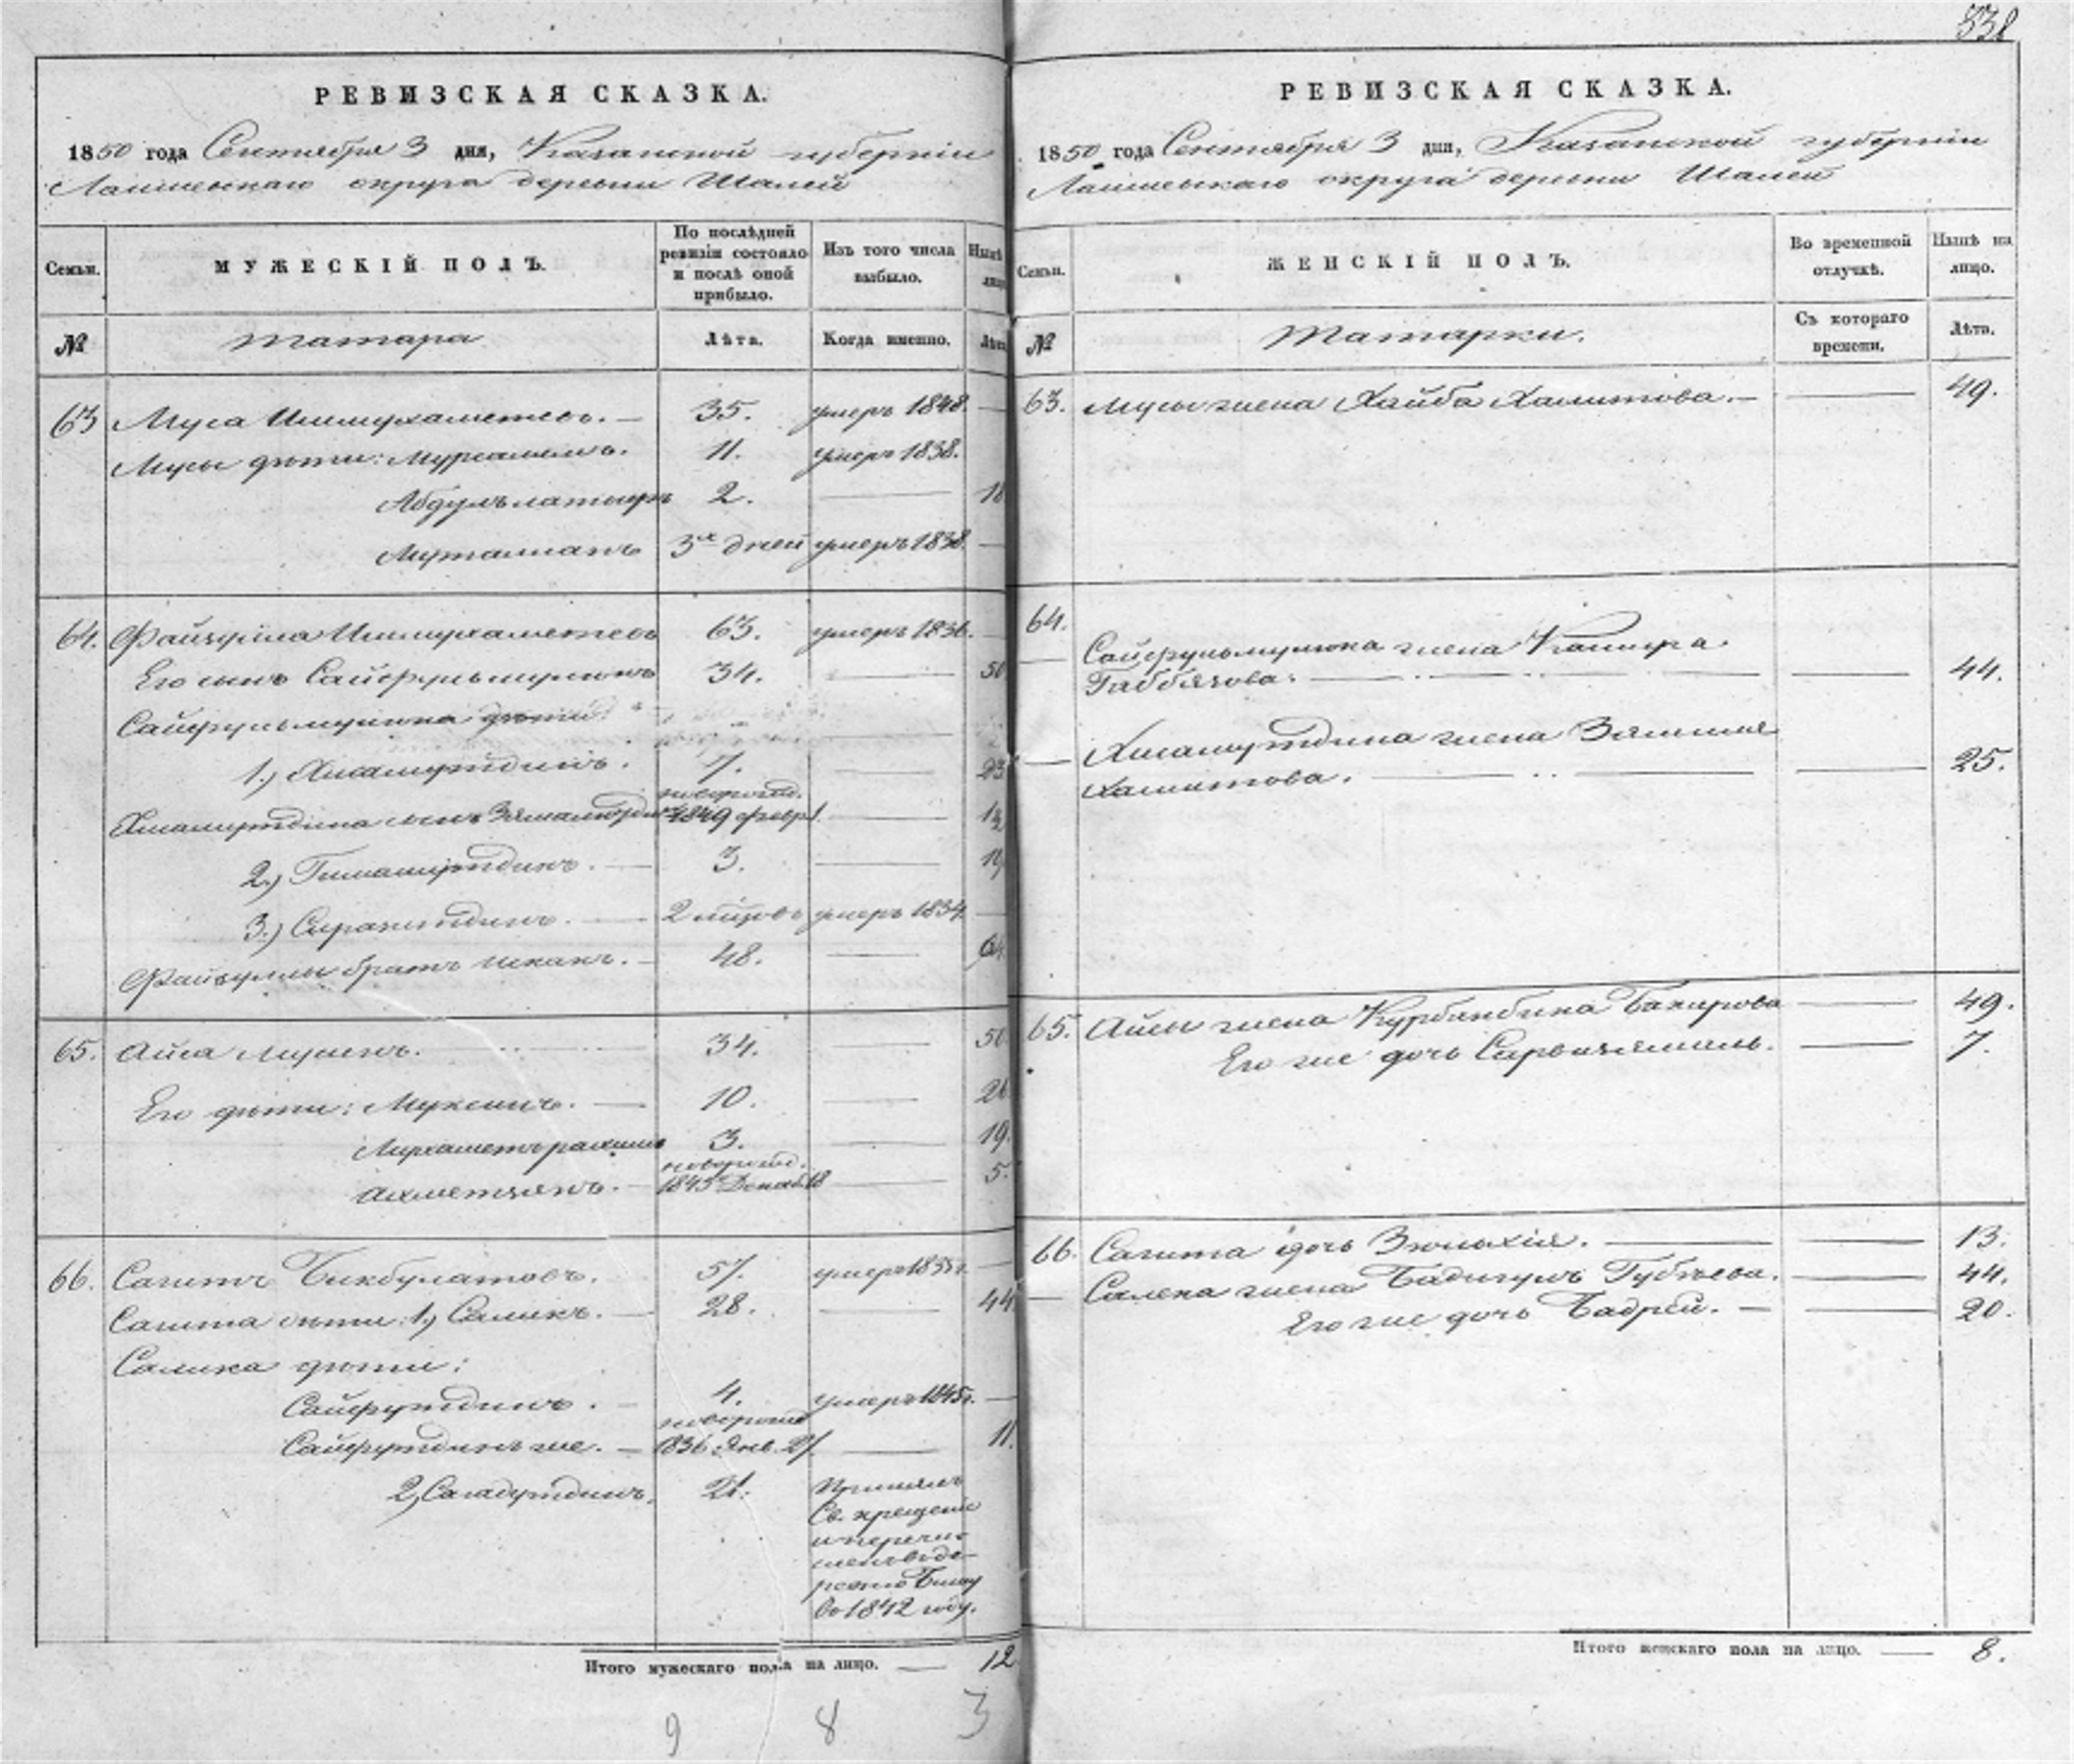 РЕВИЗСКАЯ СКАЗКА.
1850 года Сентября 3 дня, Казанской губернiи
Лаишевскаго округа деревни Шалей
Семьи.
МУЖЕСКIЙ ПОЛЪ.
По послѣдней ревизiи состояло и послѣ оной прибыло.
Изъ того числа выбыло.
Нынѣ на лицо
№
Татара
Лѣта.
Когда именно.
Лѣта
63 Муса Ишмухаметевъ. — 35. умеръ 1848. —
Мусы дѣти: 11. умеръ 1838.
Абдулълатыфъ 2. — 18
3х дней умеръ 1838. —
64. Файзулла Ишмухаметевъ 63. умеръ 1836. —
Его сынъ Сайфульмулюкъ 34. — 50
Сайфульмулюка дѣти:
1.) Хисамутдинъ. 7. — 23
новорожд.
Хисамутдина сынъ 1849 февр. 1. — 1½
2.) Гимамутдинъ. — 3. — 19
3.) Сиразитдинъ. — умеръ 1834. —
Файзуллы братъ Исхакъ. — 48. — 64.
65. Айса Мусинъ. 34. — 50
Его дѣти: Муксинъ. — 10. — 26
Мухаметърахимъ 3. — 19.
новорожд.
Ахметзянъ. — 1845 Декаб. 18 — 5.
66. Сагитъ Бикбулатовъ. 57. умеръ 1835 г. —
Сагита дѣти: 1.) Саликъ. — 28. — 44
Салика дѣти:
Сайфутдинъ. — 4. умеръ 1845 г. —
новорожд
Сайфутдинъ же. — 1836 Янв. — 11.
2.) Сагадутдинъ. 21. Принялъ
Св. крещенiе
и перечис
ленъ въ де-
ревню
въ 1842 году.
Итого мужескаго пола на лицо. — 12
9 8 3
538
РЕВИЗСКАЯ СКАЗКА.
1850 года Сентября 3 дня, Казанской губернiи
Лаишевскаго округа деревни Шалей
Семьи.
ЖЕНСКIЙ ПОЛЪ.
Во временной отлучкѣ.
Нынѣ на лицо.
№
Татарки.
Съ котораго времени.
Лѣта.
63. Мусы жена Хайба Хамитова. — — 49.
64.
— Сайфульмулюка жена
Габбязова. — — 44.
— Хисамутдина жена
Хамитова. — — 25.
65. Айсы жена Курбанбика Бакирова — 49.
Его же дочь — 7.
66. Сагита дочь Зюльхiя. — — 13.
— Салека жена Губѣева. — 44.
Его же дочь Бадрей. — — 20.
Итого женскаго пола на лицо. — 8.